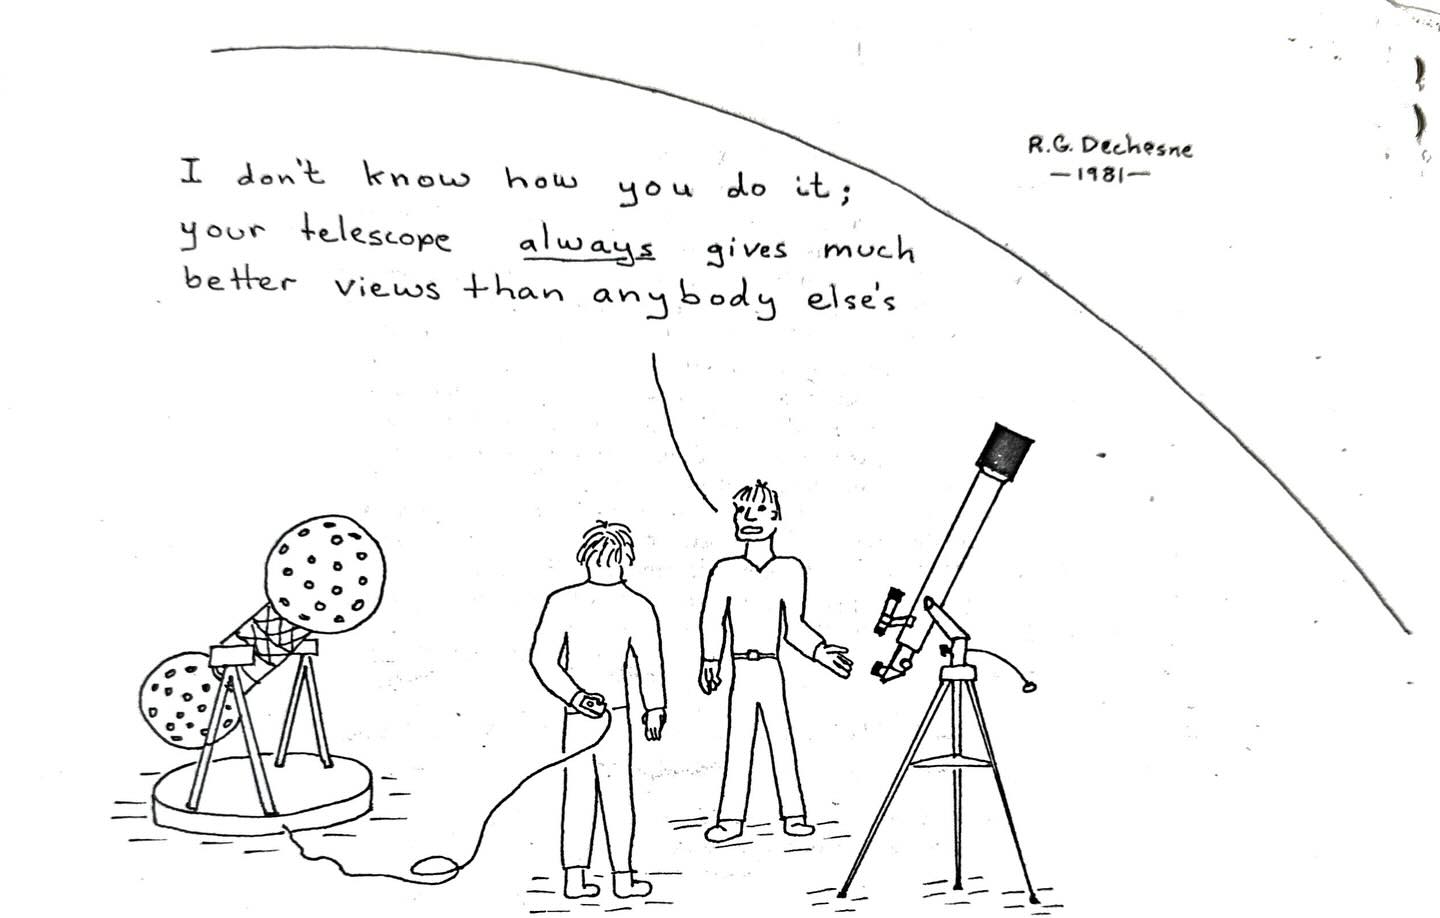 I don't know how you do it;
your telescope always gives much
better views than anybody else's
R.G. Dechesne
—1981—